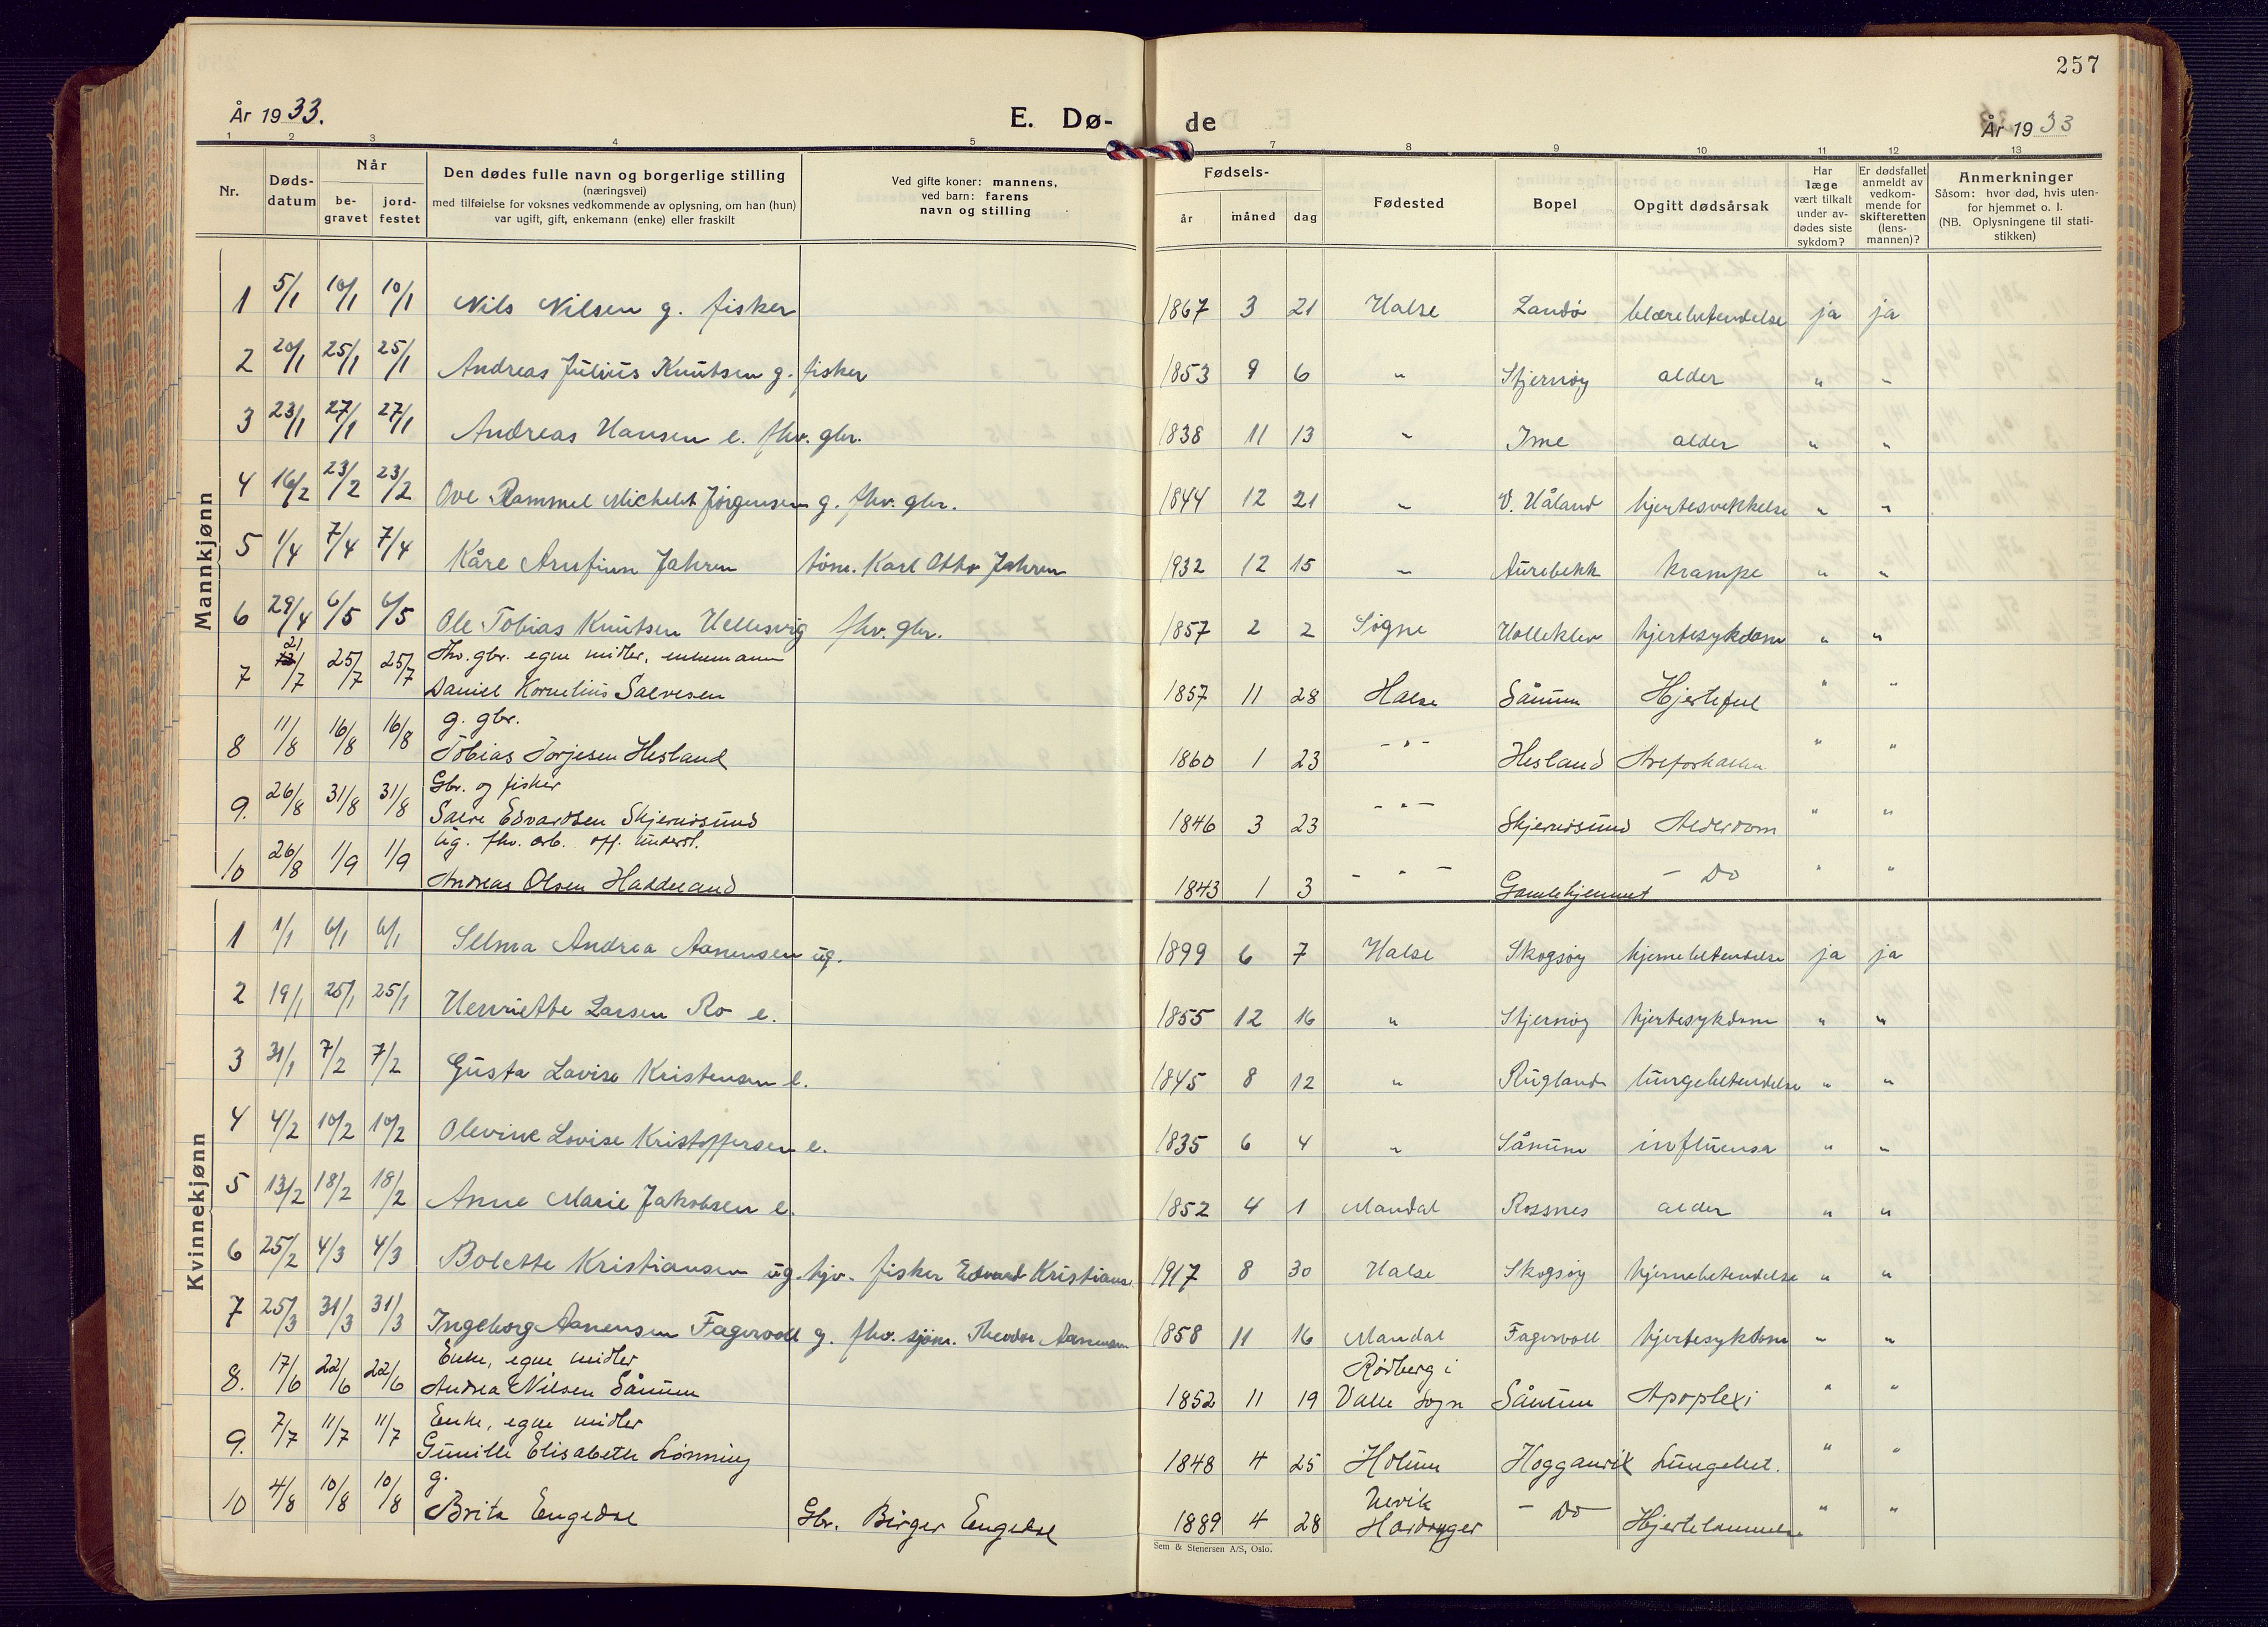 257
År 1933.
E. Dø-
de
År 1933
1 2 3 4 5 7 8 9 10 11 12 13
Nr.
Døds-
datum
Når
be-
gravet
jord-
festet
Den dødes fulle navn og borgerlige stilling
(næringsvei)
med tilføielse for voksnes vedkommende av oplysning, om han (hun)
var ugift, gift, enkemann (enke) eller fraskilt
Ved gifte koner: mannens,
ved barn: farens
navn og stilling
Fødsels-
år måned dag
Fødested
Bopel
Opgitt dødsårsak
Har
læge
vært tilkalt
under av-
dødes siste
sykdom?
Er dødsfallet
anmeldt av
vedkom-
mende for
skifteretten
(lens-
mannen)?
Anmerkninger
Såsom: hvor død, hvis uten-
for hjemmet o. l.
(NB. Oplysningene til stati-
stikken)
Mannkjønn
1 5/1 10/1 10/1 Nils Nilsen g. fisker 1867 3 21 Halse Landø blærebetendelse ja ja
2 20/1 25/1 25/1 Andreas Julius Knutsen g. fisker 1853 9 6 " Stjernøy alder " "
3 23/1 27/1 27/1 Andreas Hansen e. fhv. gbr. 1838 11 13 " Ime alder " "
4 16/2 23/2 23/2 Ove Rammel Michelet Jörgensen g. fhv. gbr. 1844 12 21 " V. Håland hjertesvekkelse " "
5 1/4 7/4 7/4 Kåre Arnfinn Jahren tøm. Karl Otto Jahren 1932 12 15 " Aurebekk krampe " "
6 29/4 6/5 6/5 Ole Tobias Knutsen Hellesvig fhv. gbr. 1857 2 2 Søgne Holleklev hjertesykdom " "
Fhv. gbr. egne midler, enkemann
7 21/7 25/7 25/7 Daniel Kornelius Salvesen 1857 11 28 Halse Sånum Hjertefeil " "
g. gbr.
8 11/8 16/8 16/8 Tobias Torjesen Hesland 1860 1 23 - " - Hesland Areforkalkn " "
Gbr. og fisker
9. 26/8 31/8 31/8 Salve Edvardsen Skjernøsund 1846 3 23 - " - Skjernøsund Alderdom " "
Ug. fhv. arb. off. underst.
10 26/8 1/9 1/9 Andreas Olsen Haddeland 1843 1 3 - " - Gamlehjemmet - Do " "
Kvinnekjønn
1 1/1 6/1 6/1 Selma Andrea Aanensen ug. 1899 6 7 Halse Skogsøy hjernebetendelse ja ja
2 19/1 25/1 25/1 Henriette Larsen Ro e. 1855 12 16 " Stjernøy hjertesykdom " "
3 31/1 7/2 7/2 Gusta Lovise Kristensen e. 1845 8 12 " Rugland lungebetendelse " "
4 4/2 10/2 10/2 Olevine Lovise Kristoffersen e. 1835 6 4 " Sånum influensa " "
5 13/2 18/2 18/2 Anne Marie Jakobsen e. 1852 4 1 Mandal Rossnes alder " "
6 25/2 4/3 4/3 Bolette Kristiansen ug. hjv. fisker Edvard Kristianse 1917 8 30 Halse Skogsøy hjernebetendelse " "
7 25/3 31/3 31/3 Ingeborg Aanensen Fagervoll g. fhv. sjøm. Theodor Aanensen 1858 11 16 Mandal Fagervoll hjertesykdom " "
Enke, egne midler Rødberg i
8. 17/6 22/6 22/6 Andrea Nilsen Sånum 1852 11 19 Valle Sogn Sånum Apoplexi " "
Enke, egne midler
9. 7/7 11/7 11/7 Gunille Elisabeth Lønning 1848 4 25 Holum Hogganvik Lungebet. " "
g. Ulvik
10 4/8 10/8 10/8 Brita Engedal Gbr. Birger Engedal 1889 4 28 Hardanger - Do Hjertelammelse " "
Sem & Stenersen A/S, Oslo.